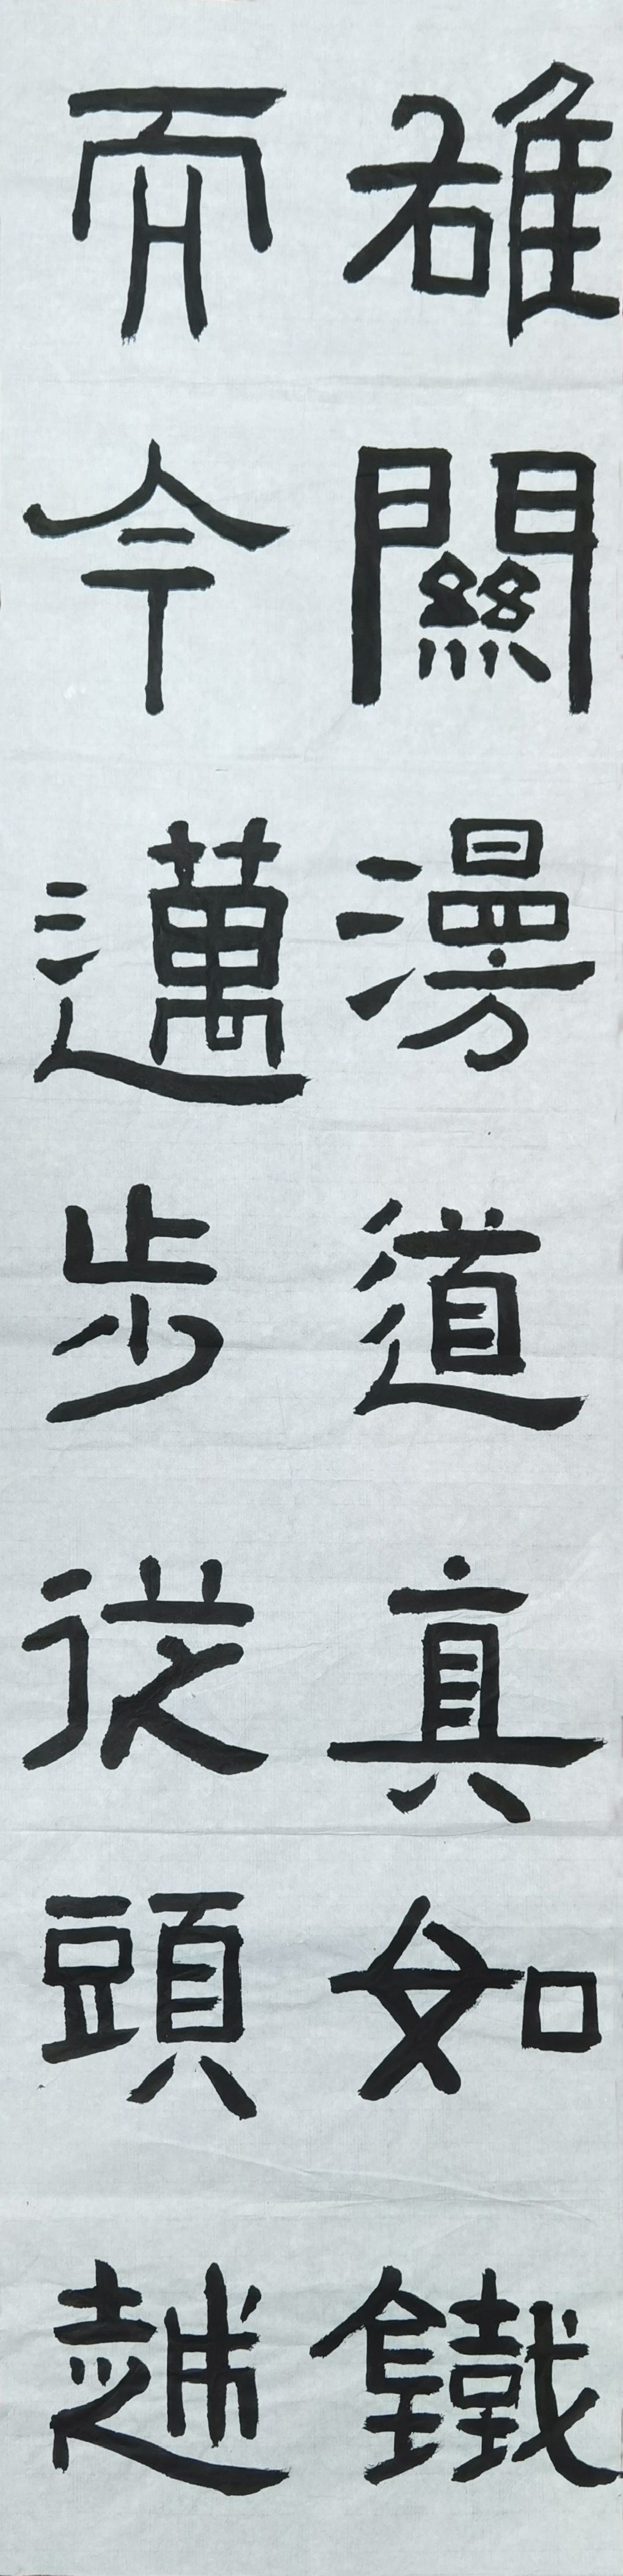 雄關漫道真如鐵
而今邁步從頭越